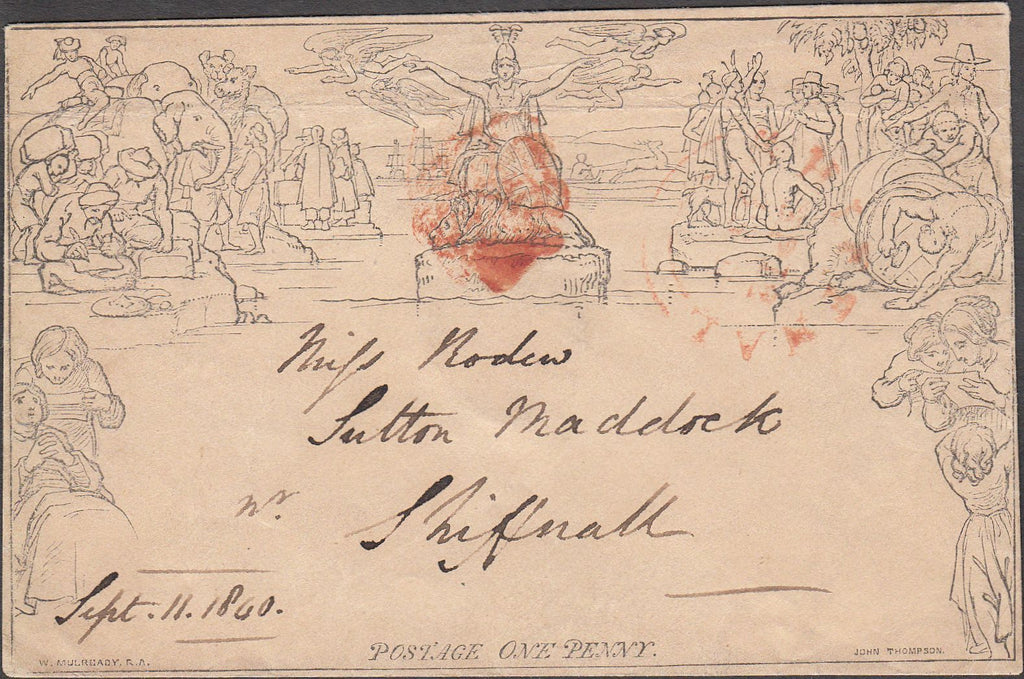 Miss Roden
Sutton Maddock
nr.
Shiffnall
Sept. 11. 1840.
POSTAGE ONE PENNY.
W. MULREADY, R.A.
JOHN THOMPSON.